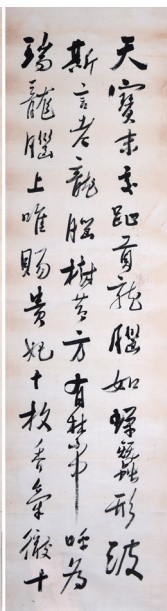 天寶末交趾貢龍腦如蟬蠶形波
斯言老龍腦樹節方有禁中呼為
瑞龍腦上唯賜貴妃十枚香氣徹十